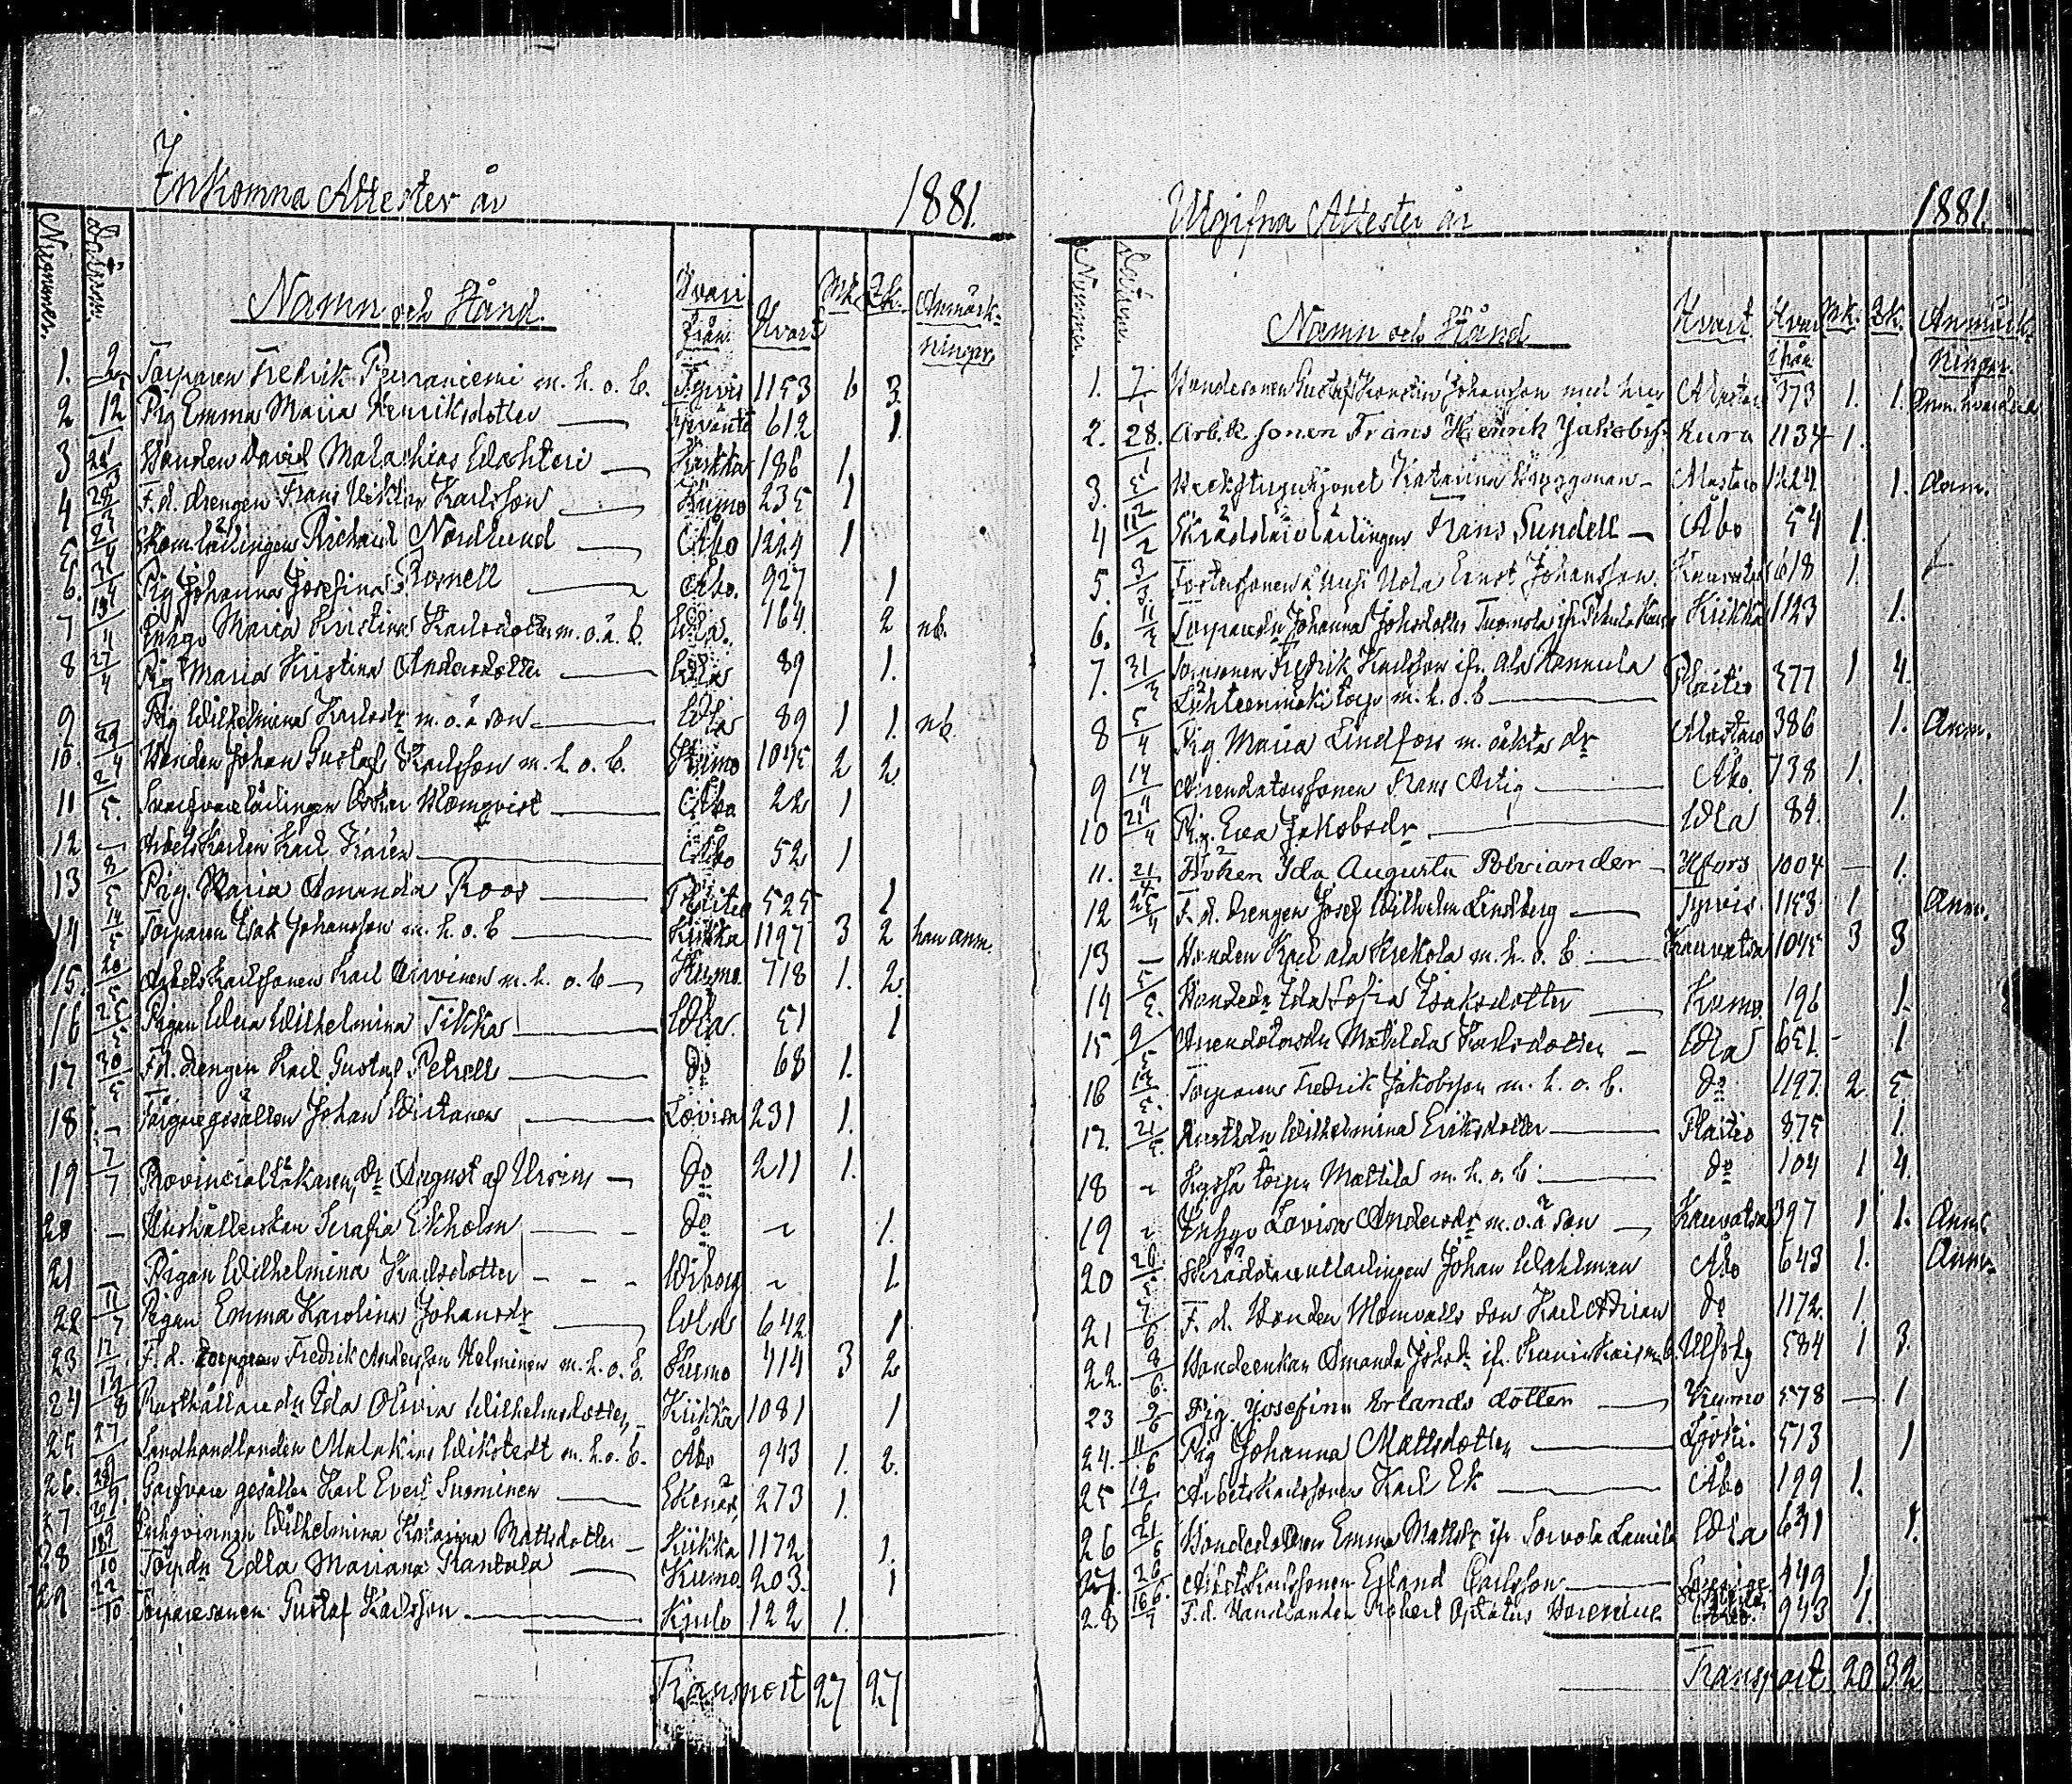 Inkomna Attester år 1881.
Nummer. Datum. Namn och Stånd. Hvarifrån. Hvart Mk. Qk. Anmärkningar
1. 2/1 Torparen Fredrik m. h. o. b. Tyrvis 1153 6 3.
2 12 Pig Emma Maria Henriksdotter — 612 1.
3 Bonden David Malachias — 186 1.
4 F. d. drengen Frans Viktor Karlsson — Kumo 235 1
5 Skom. lärlingen Richard Nordlund — Åbo 1224 1
6. Pig Johanna Josefina Rosnell — Åbo. 927 1
7 Inhys Maria Kristina Karlsdotter m. o. ä. b. Wla. 164. 2 nb.
8 27/4 Pig Maria Kristina Andersdotter — Wla 89 1.
9 — Pig Wilhelmina Karlsdr m. o. ä son — Wla 89 1 1. nb.
10. 29/4 Bonden Johan Gustaf Karlsson m. h. o. b. Kumo 1045 2 2
11 2/5. lärlingen Oskar Blomqvist — Åbo 22 1
12 — Arbetskarlen Karl — Åbo 52 1
13 8/5 Pig. Maria Amanda Roos — 525 1
14 14/5 Torparen Isak Johansson m. h. o. b — Kiikka 1197 3 2 han anm.
15. 20/5 Arbetskarlsonen Karl m. h. o. b — Kumo. 718 1. 2.
16 25/5 Pigan Wilhelmina Tikka — Wla. 51 1
17 30/5 Fd. drengen Karl Gustaf Petrell — do 68 1.
18 — Johan — Lovisa 231 1.
19 7/7 Provincialläkaren, Dr August af Ursin — do 211 1.
20 — Hushållerskan Serafia Ekholm — do ~ 1.
21 — Pigan Wilhelmina Karlsdotter — Wiborg ~ 1
22 11/7 Pigan Emma Karolina Johansdr — Wla 642 1
23 12/7. F. d. torparen Fredrik Andersson Helminen m. h. o. b. Kumo 414 3 2
24 12/8 Rusthållaredr Ida Olivia Wilhelmsdotter, — Kiikka 1081 1
25 27 Landhandlanden Malakias Wikstedt m. h. o. b. Åbo 943 1. 2.
26. gesällen Karl Evert Suominen — Ekenäs, 273 1.
27 Inhqvinnan Wilhelmina Katarina Mattsdotter — Kiikka 1172 1.
28 18/10 Torpdr Edla Mariana Rantala — Kumo. 203. 1
29 22/10 Torparesonen Gustaf Karlsson — Kjulo 122 1.
Transport 27 27
Utgifna Attester år 1881.
Nummer. Datum. Namn och Stånd Hvart Hvarifrån Mk. Qk. Anmärkningar.
1. 7/1 Bondesonen Gustaf Johansson med Alastaro 373 1. 1.
2. 28./1 Arb.k. sonen Frans Henrik Jakobss. Kura 1134 1.
3. Backstuguhjonet Katarina — Alastaro 1224 1. Anm.
4 12/2 Skräddarelärlingen Frans Sundell — Åbo 54 1.
5. 3/3. Ernst Johansson. Kauvatsa 618 1.
6. 11/3 Johanna Johsdotter Kiikka 1123 1.
7. 31/3 Fredrik Karlsson ifr. Ala
m. h. o. b — 377 1 4.
8 5/4 Pig. Maria Lindfors m. oäkta dr Alastaro 386 1. Anm.
9 14/4 Arrendatorssonen Frans Artig — Åbo. 738 1.
10 21/4 Pig. Eva Jakobsdr — Wla 84. 1.
11. 21/4 Fröken Ida Augusta Polviander — Hfors 1004 — 1.
12 25/4 F. d. drengen Josef Wilhelm Lindberg — Tyrvis. 1153 1 Anm.
13 — Bonden Karl ala Krekola m. h. o. b — Kauvatsa 1045 3 3
14 5/5. Bondedr Ida Sofia Isaksdotter — Kumo. 196 1.
15 9/5 Arrendatorsdr Matilda Karlsdotter — Wla 651. - 1
16 13/5. Torparen Fredrik Jakobsson m. h. o. b. do 1197. 2 5.
17. 21/5. Rusthdr Wilhelmina Eriksdotter — 875 1.
18 ~ Mattila m. h. o. b: — do 104 1 4.
19 ~ Inhys Lovisa Andersdr m. o. ä son — Kauvatsa 397 1 1. Anm.
20 28/5 Johan Wahlman Åbo 643 1. Anm.
21 7/6 F. d. Bonden Blomvalls son Karl Adrian do 1172. 1.
22. 8/6. Bondeenkan Amanda Johsdr Ulfsby 584 1 3.
23 9/6 Pig. Josefina Erlandsdotter — Kumo 578 — 1
24. 11/6 Pig Johanna Mattsdotter — 513 1
25 19/6 Arbetskarlssonen Karl Ek — Åbo 199 1.
26 21/6 Bondedottren Emma Mattsdr Wla 641 1.
27. 26/6. Arbetskarlssonen Erland Carlsson — 449 1.
28 16/7 F. d. Handlanden Robert Optatus 943 1.
Transport 20 32